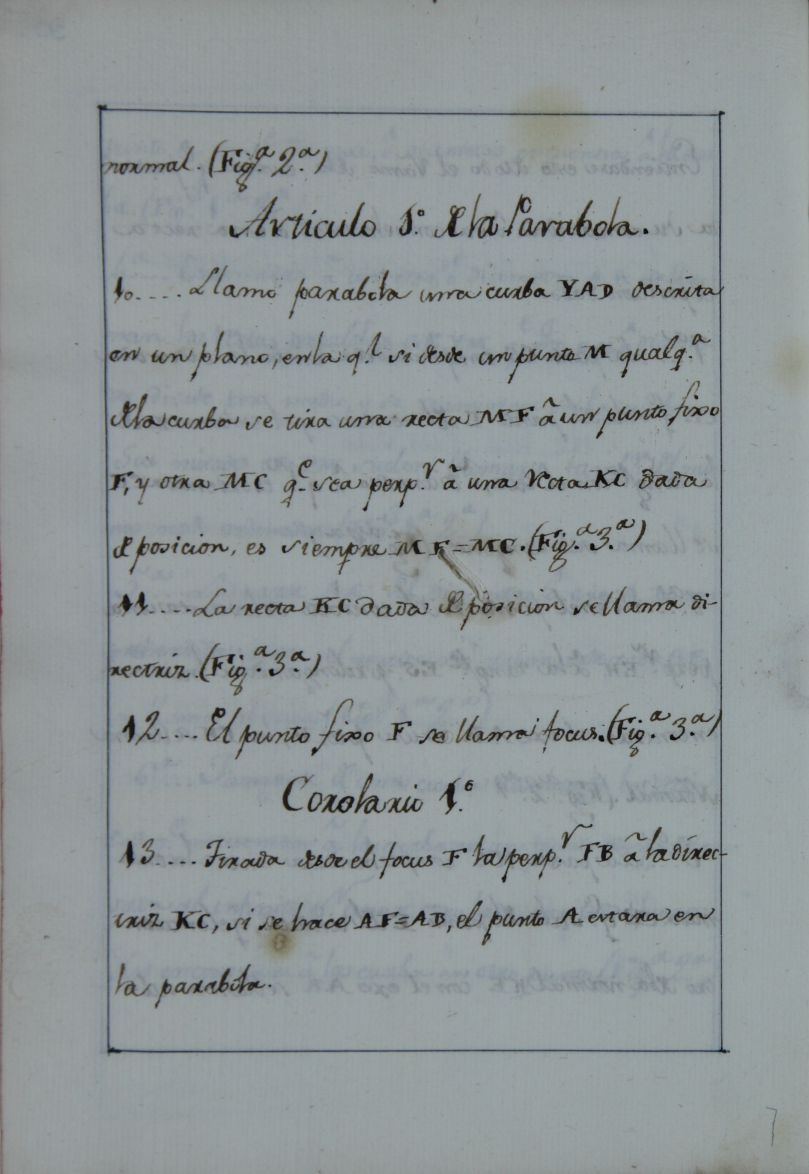 normal. (Fig.ª 2.ª)
Artículo 1.º de la Parabola.
10.... Llamo parabola una curba YAD descrita
en un plano, en la q.l si desde un punto M qualq.ª
de la curba se tira una recta MF â un punto fixo
F, y otra MC q.e sea perp.r â una recta KC dada
de posicion, es siempre MF=MC. (Fig.ª 3.ª)
11.... La recta KC dada de posicion se llama di-
rectriz. (Fig.ª 3.ª)
12.... El punto fixo F se llama focus. (Fig.ª 3.ª)
Corolario 1.º
13.... Tirada desde el focus F la perp.r FB â la direc-
triz KC, si se hace AF=AB, el punto A estara en
la parabola.
7